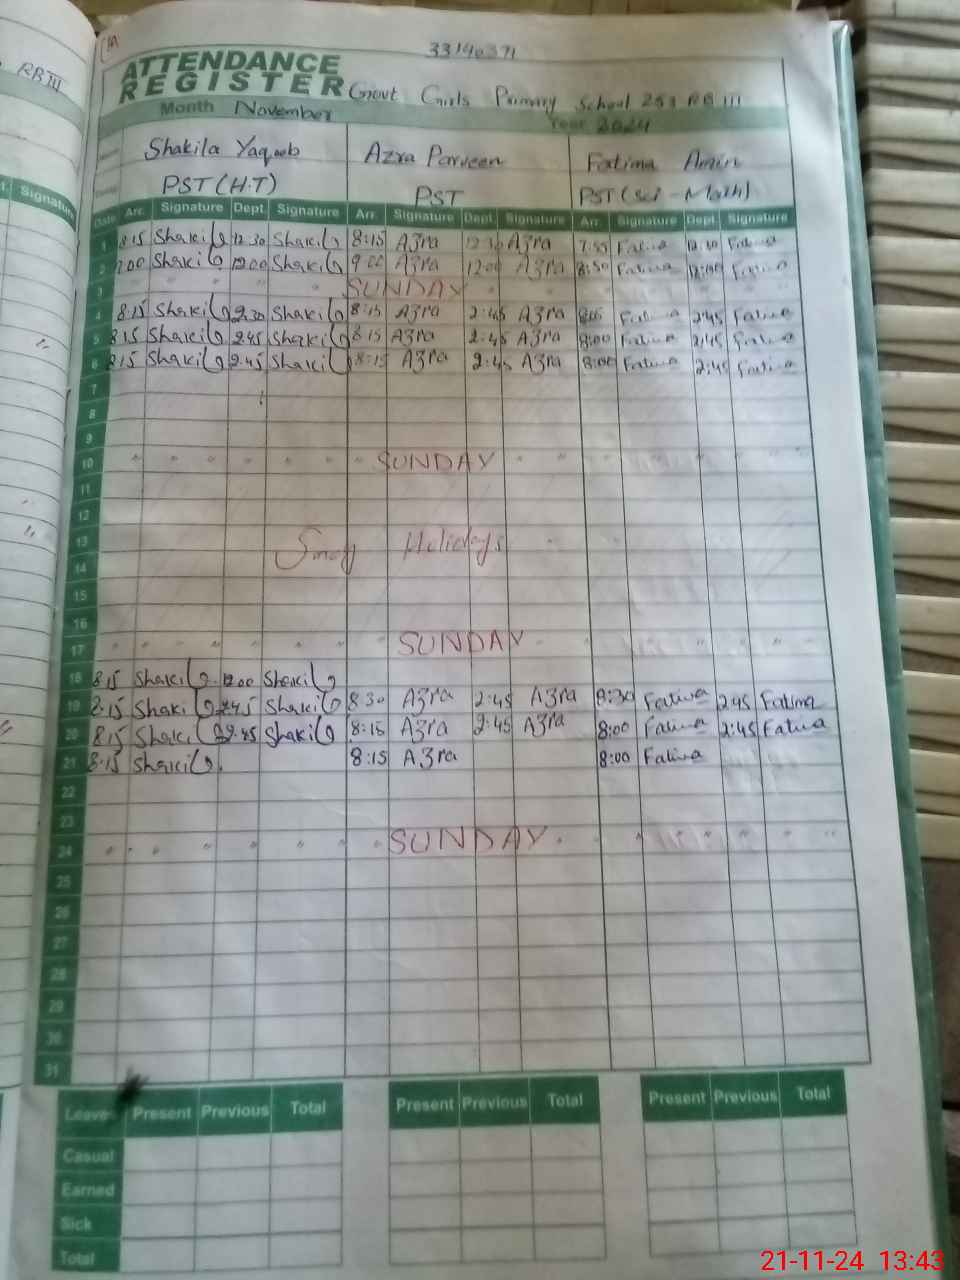 RB III
Signature
33140371
ATTENDANCE
REGISTER Govt Girls Primary School 253 RB III
Month November Year 2024
Shakila Yaqoob Azra Parveen Fatima Amin
PST (H.T) PST PST (Sci - Math)
Date Arr. Signature Dept. Signature Arr. Signature Dept. Signature Arr. Signature Dept. Signature
1 8:15 Shakila 12:30 Shakila 8:15 Azra 12:30 Azra 7:55 Fatima 12:30 Fatima
2 Shakila 12:00 Shakila 9:00 Azra 12:00 Azra 8:50 Fatima 12:00 Fatima
3 SUNDAY
4 8:15 Shakila 2:30 Shakila 8:15 Azra 2:45 Azra Fatima 2:45 Fatima
5 8:15 Shakila 2:45 Shakila 8:15 Azra 2:45 Azra 8:00 Fatima 2:45 Fatima
6 8:15 Shakila 2:45 Shakila 8:15 Azra 2:45 Azra 8:00 Fatima 2:45 Fatima
7
8
9
10 SUNDAY
11
12
13 Smog Holidays
14
15
16
17 SUNDAY
18 8:15 Shakila 12:00 Shakila
19 8:15 Shakila 2:45 Shakila 8:30 Azra 2:45 Azra 8:30 Fatima 2:45 Fatima
20 8:15 Shakila 2:45 Shakila 8:15 Azra 2:45 Azra 8:00 Fatima 2:45 Fatima
21 8:15 Shakila 8:15 Azra 8:00 Fatima
22
23
24 SUNDAY
25
26
27
28
29
30
31
Leaves Present Previous Total Present Previous Total Present Previous Total
Casual
Earned
Sick
Total
21-11-24 13:43